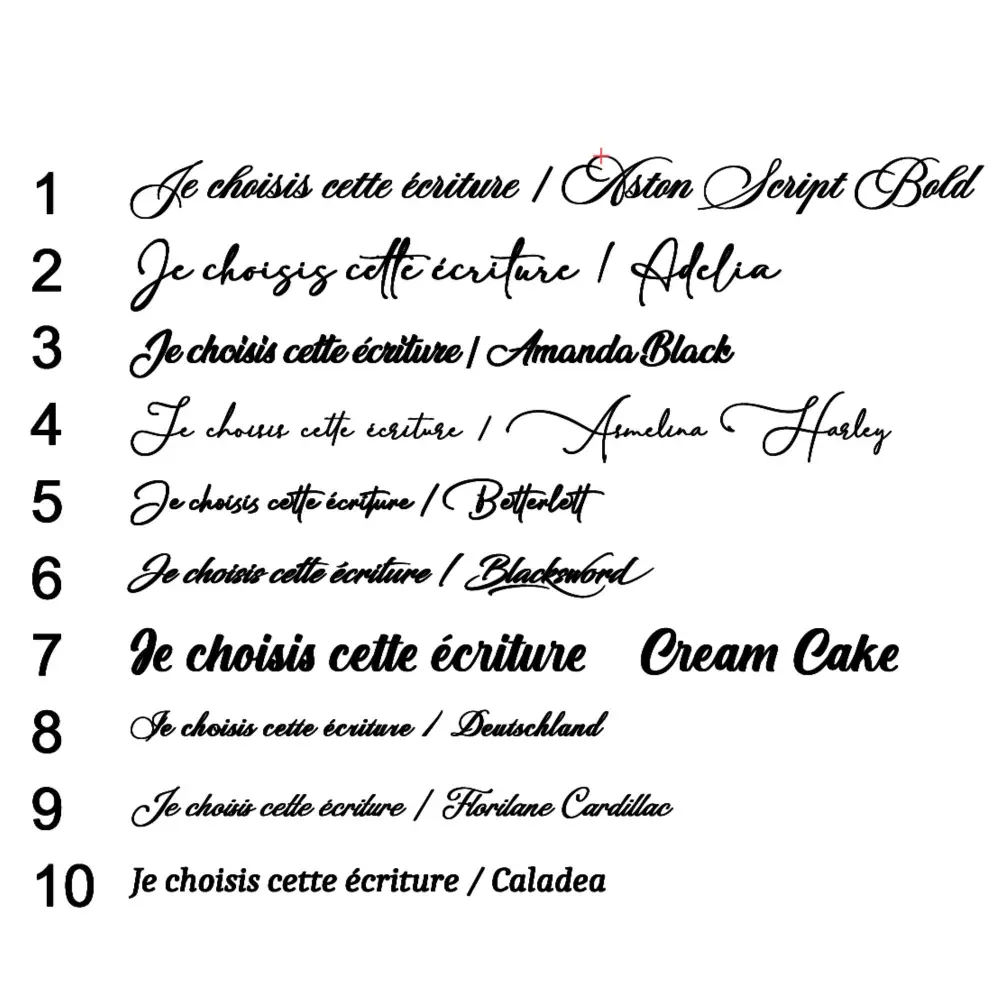 1 Je choisis cette écriture / Aston Script Bold
2 Je choisis cette écriture / Adelia
3 Je choisis cette écriture / Amanda Black
4 Je choisis cette écriture / Asmelina Harley
5 Je choisis cette écriture / Betterlett
6 Je choisis cette écriture / Blacksword
7 Je choisis cette écriture Cream Cake
8 Je choisis cette écriture / Deutschland
9 Je choisis cette écriture / Florilane Cardillac
10 Je choisis cette écriture / Caladea